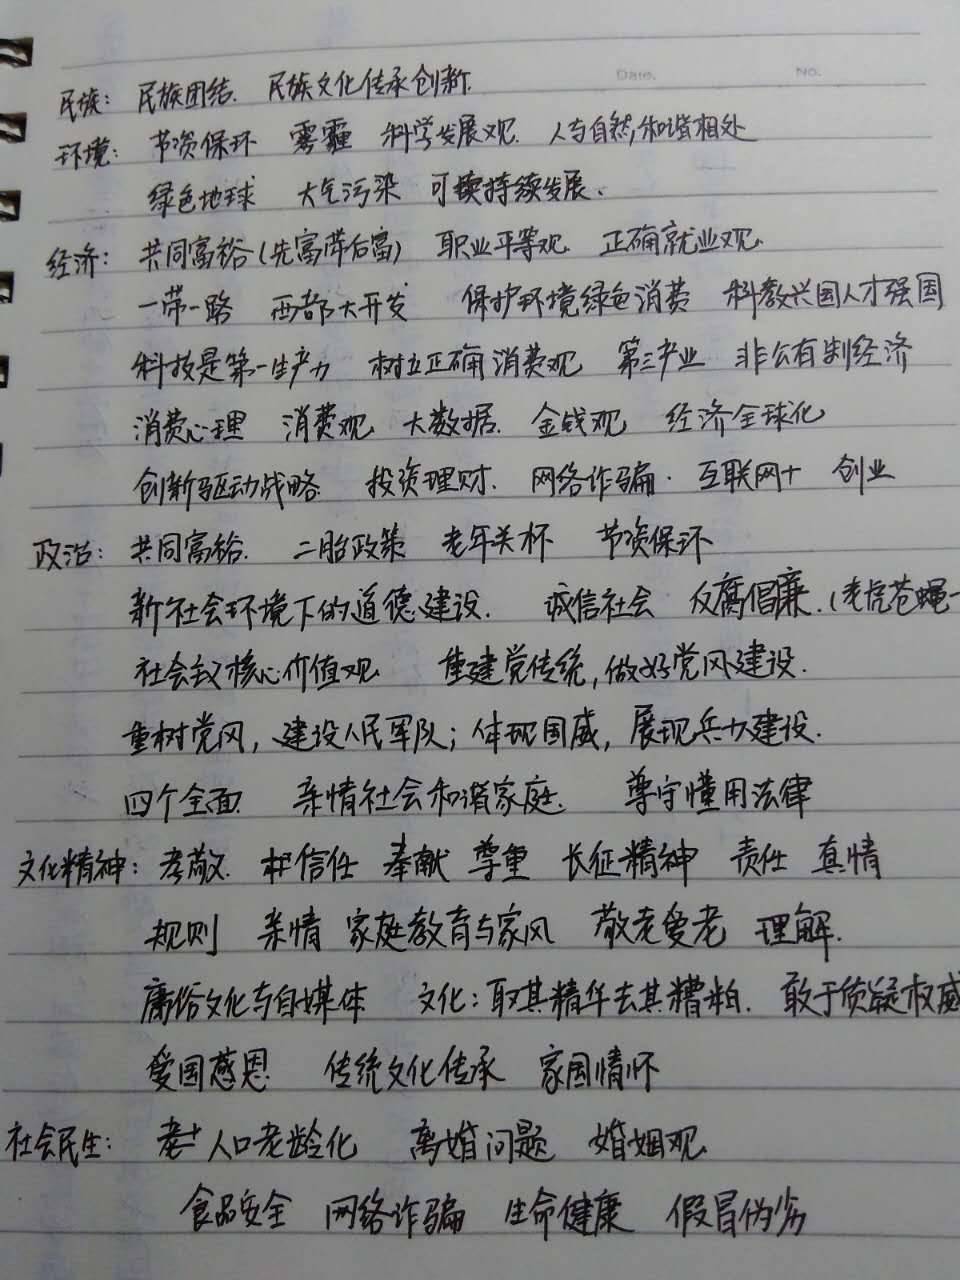 Date. No.
民族： 民族团结. 民族文化传承创新.
环境： 节资保环 雾霾 科学发展观. 人与自然和谐相处
绿色地球 大气污染 可持续发展.
经济： 共同富裕(先富带后富) 职业平等观 正确就业观.
一带一路 西部大开发 保护环境绿色消费 科教兴国人才强国
科技是第一生产力 树立正确消费观 第三产业 非公有制经济
消费心理 消费观 大数据. 金钱观 经济全球化
创新驱动战略 投资理财. 网络诈骗. 互联网+ 创业
政治： 共同富裕. 二胎政策 老年关怀 节资保环
新社会环境下的道德建设. 诚信社会 反腐倡廉.(老虎苍蝇一
社会主义核心价值观 重建党传统,做好党风建设.
重树党风，建设人民军队；体现国威，展现兵力建设.
四个全面. 亲情社会和谐家庭. 尊守懂用法律
文化精神： 孝敬. 信任 奉献 尊重 长征精神 责任 真情
规则 亲情 家庭教育与家风 敬老爱老 理解.
庸俗文化与自媒体 文化：取其精华去其糟粕. 敢于质疑权威
爱国感恩 传统文化传承 家国情怀
社会民生： 人口老龄化 离婚问题 婚姻观
食品安全 网络诈骗 生命健康 假冒伪劣